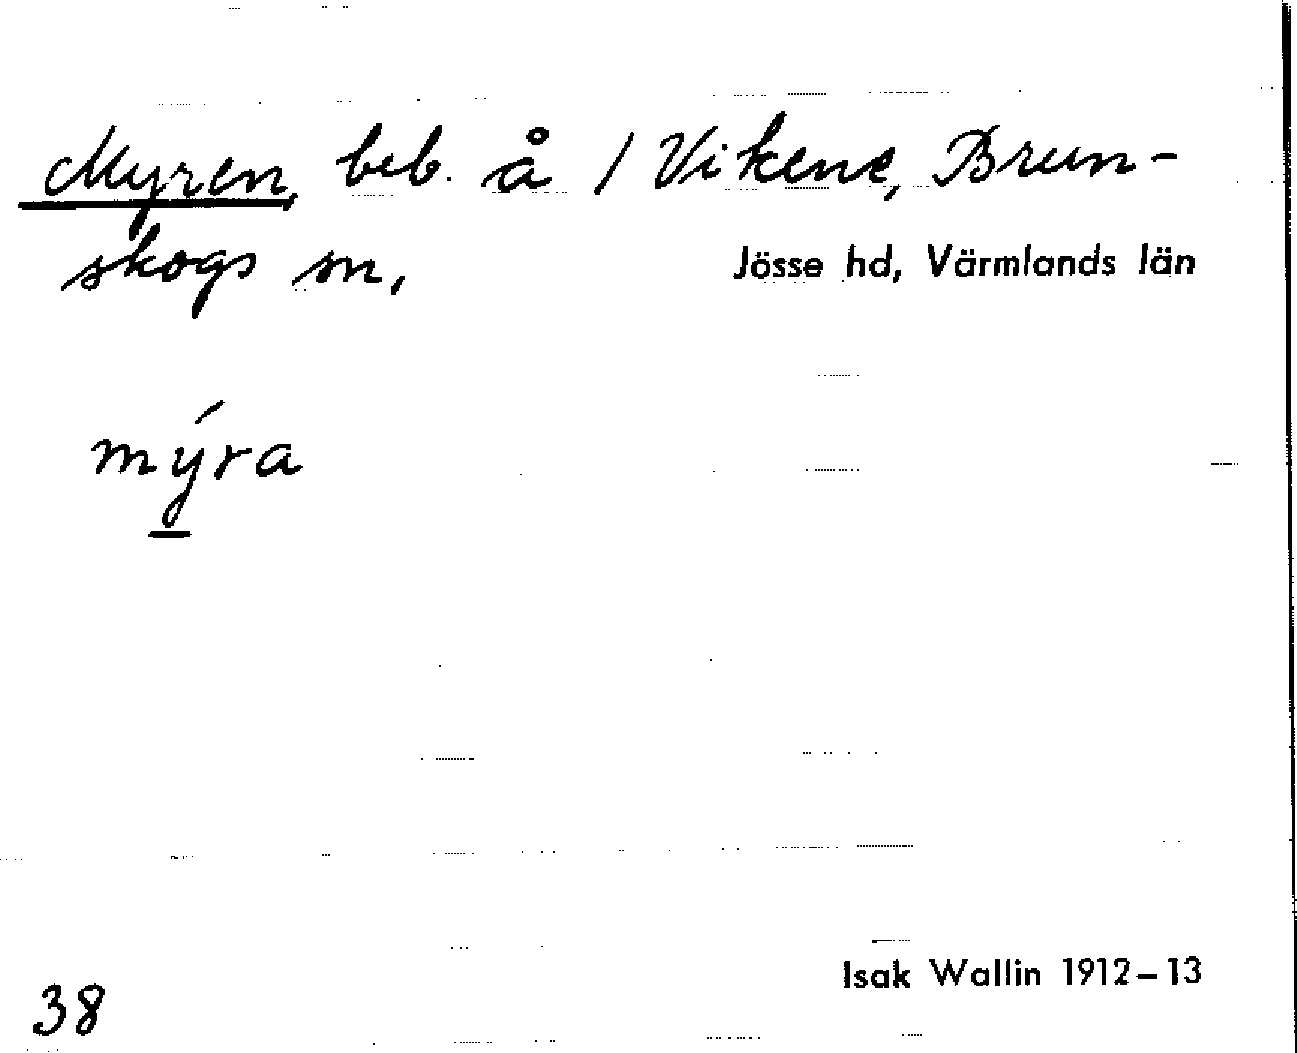 Myren, beb. å / Vikene, Brun-
skogs sn, Jösse hd, Värmlands län
mýra
Isak Wallin 1912–13
38